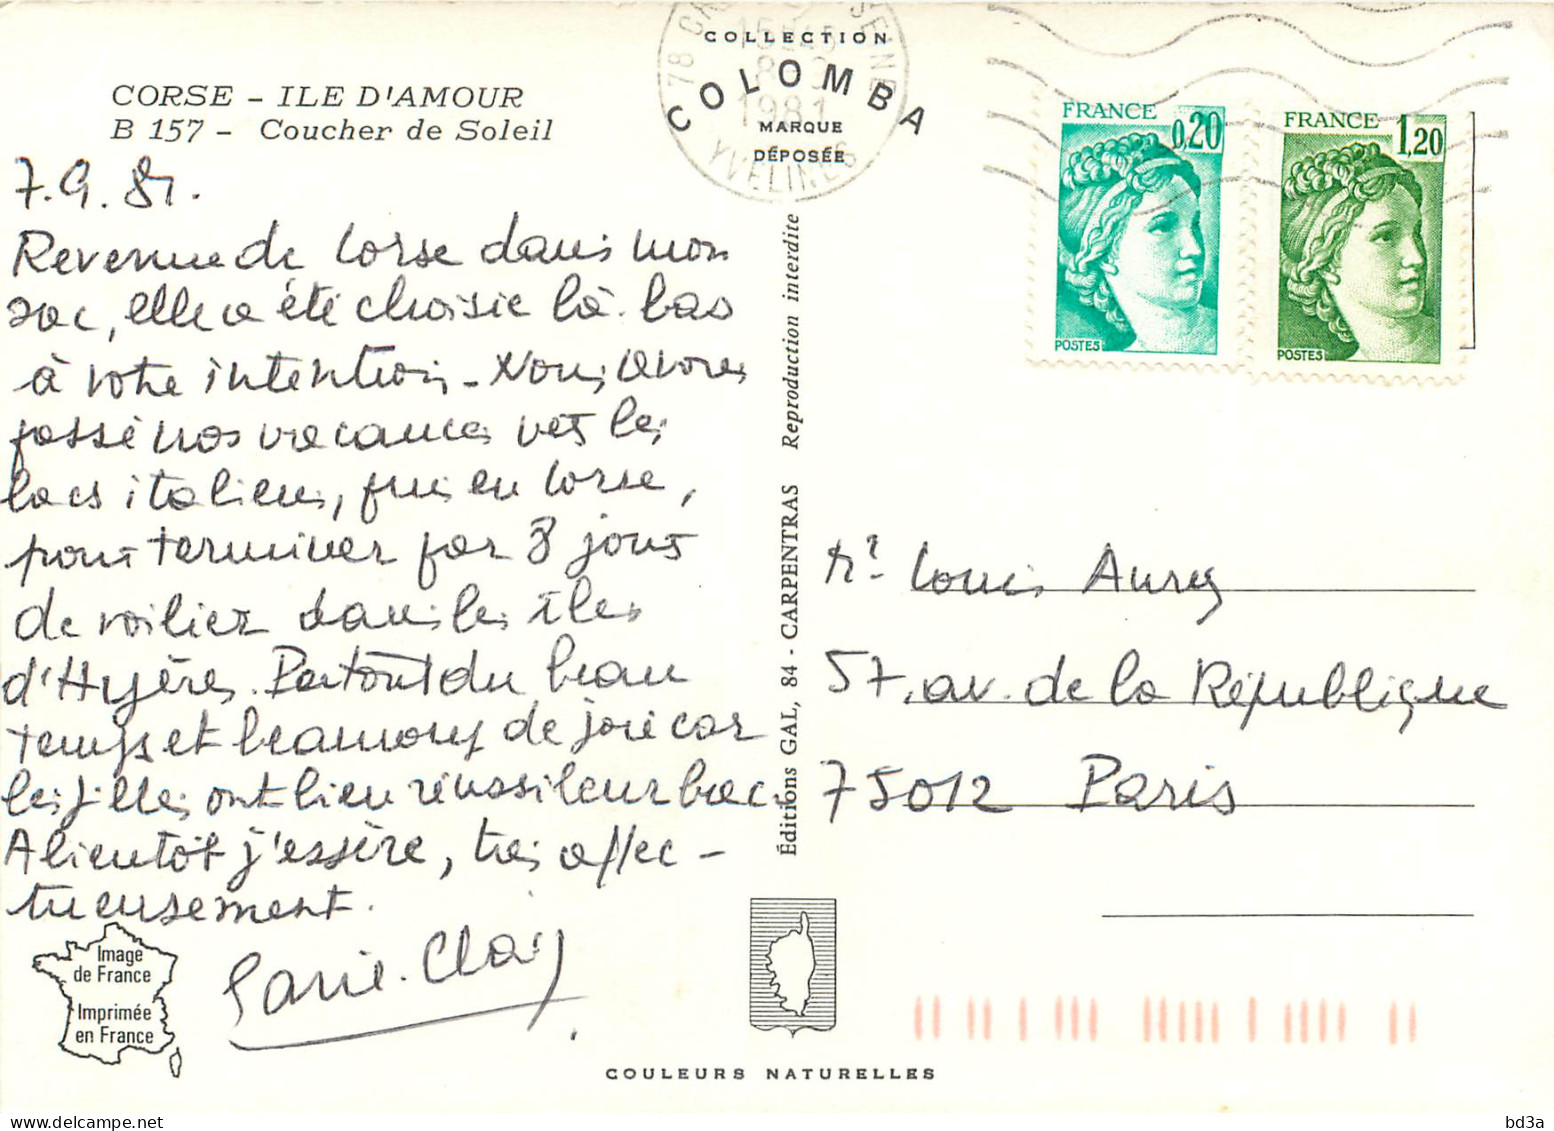 COLLECTION
COLOMBA
MARQUE
DÉPOSÉE
78
15H45
8 - 9
1981
YVELINES
CORSE - ILE D'AMOUR
B 157 - Coucher de Soleil
FRANCE 0,20
POSTES
FRANCE 1,20
POSTES
7.9.81.
Revenue de Corse dans mon
sac, elle a été choisie là-bas
à votre intention - Nous avons
passé nos vacances vers les
lacs italiens, puis en Corse,
pour terminer par 8 jours
de voilier dans les îles
d'Hyères. Partout du beau
temps et beaucoup de joie car
les filles ont bien réussi leur bac.
A bientôt j'espère, très affec-
tueusement.
Marie-Clay
Mr Louis Aurey
57, av. de la République
75012 Paris
Éditions GAL, 84 - CARPENTRAS Reproduction interdite
Image
de France
Imprimée
en France
COULEURS NATURELLES
bd3a